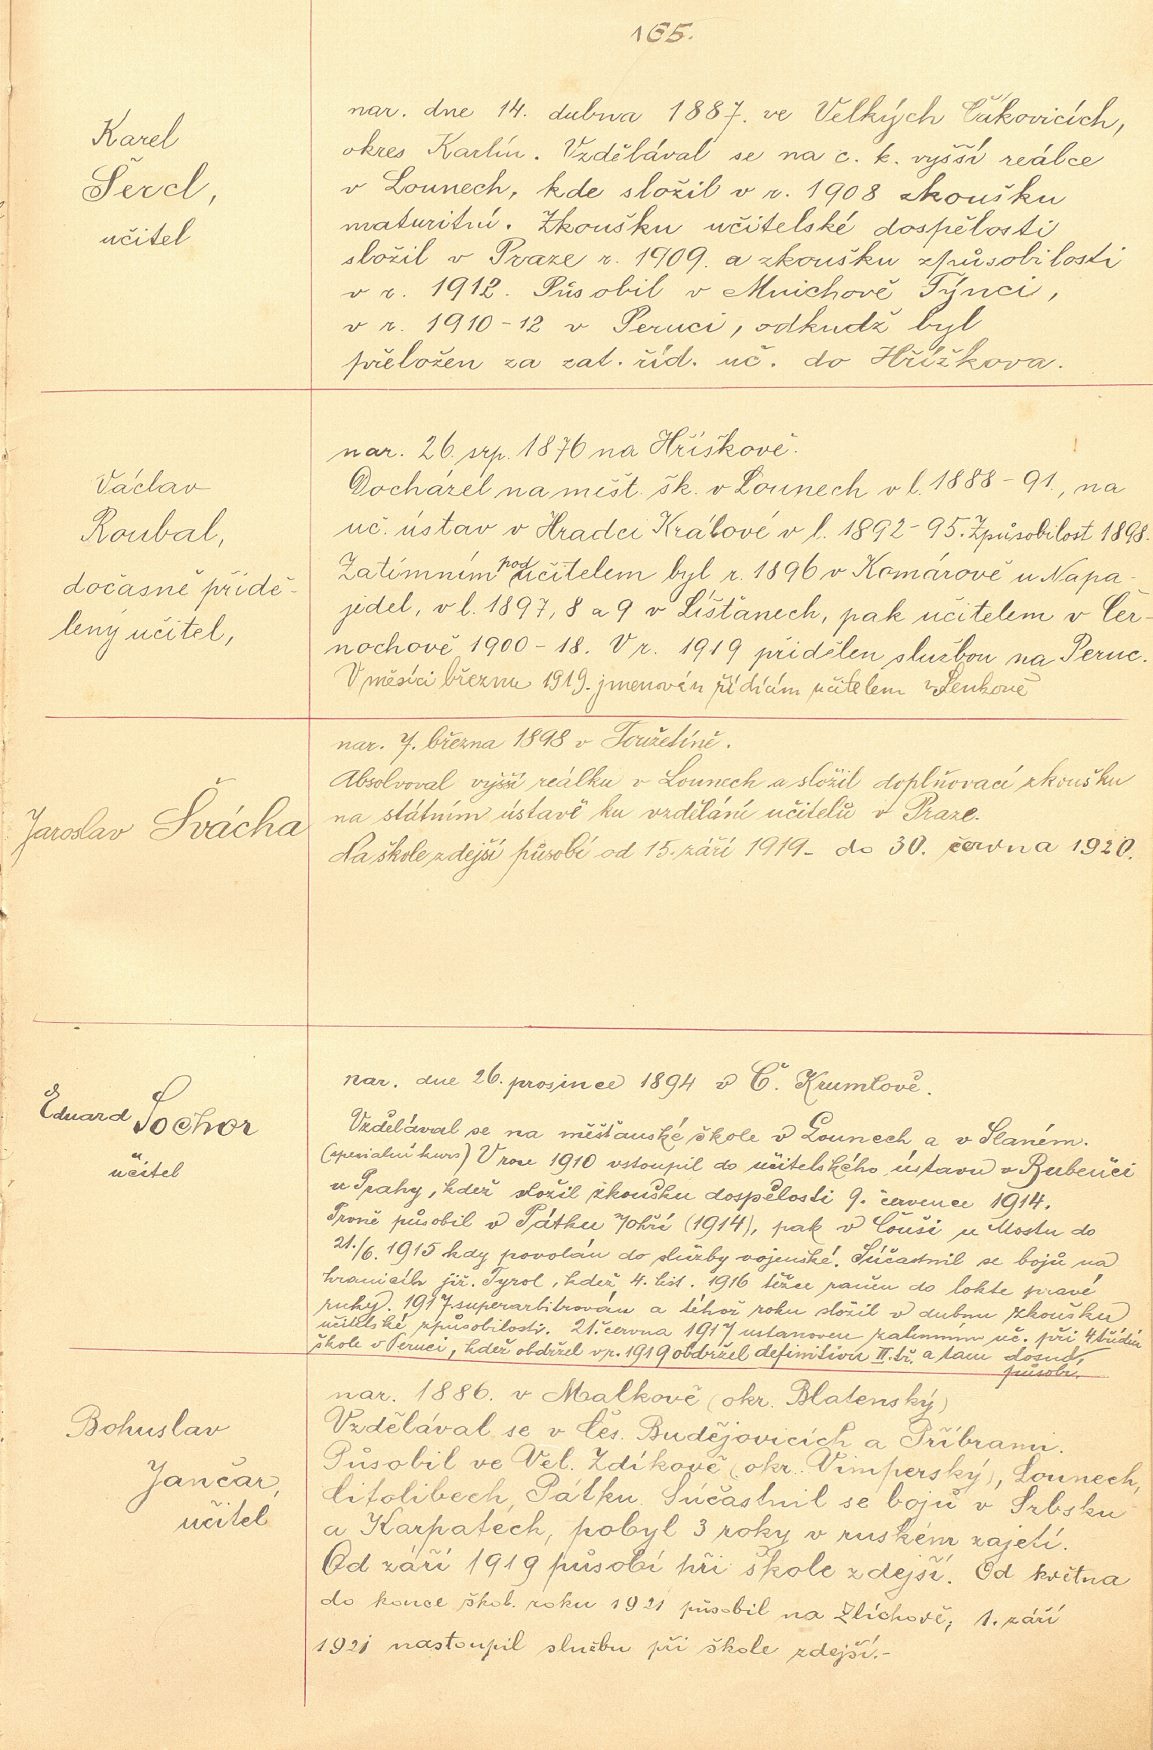 165.
Karel
Šercl,
učitel
nar. dne 14. dubna 1887. ve Velkých Čakovicích,
okres Karlín. Vzdělával se na c. k. vyšší reálce
v Lounech, kde složil v r. 1908 zkoušku
maturitní. Zkoušku učitelské dospělosti
složil v Praze r. 1909. a zkoušku způsobilosti
v r. 1912. Působil v Mnichově Týnci,
v r. 1910-12 v Peruci, odkudž byl
přeložen za zat. říd. uč. do Hříškova.
Václav
Roubal,
dočasně přidě-
lený učitel,
nar. 26. srp. 1876 na Hříškově.
Docházel na měšt. šk. v Lounech v l. 1888-91., na
uč. ústav v Hradci Králové v l. 1892-95. Způsobilost 1898.
Zatímním podučitelem byl r. 1896 v Komárově u Napa-
jedel, v l. 1897, 8 a 9 v Líšťanech, pak učitelem v Čer-
nochově 1900-18. V r. 1919 přidělen službou na Peruc.
V měsíci březnu 1919. jmenován řídícím učitelem v Lenkově
Jaroslav Švácha
nar. 7. března 1898 v Toužetíně.
Absolvoval vyšší reálku v Lounech a složil doplňovací zkoušku
na státním ústavě ku vzdělání učitelů v Praze.
Na škole zdejší působí od 15. září 1919- do 30. června 1920.
Eduard Sochor
učitel
nar. dne 26. prosince 1894 v Č. Krumlově.
Vzdělával se na měšťanské škole v Lounech a v Slaném.
(speciální kurs) V roce 1910 vstoupil do učitelského ústavu v Bubenči
u Prahy, kdež složil zkoušku dospělosti 9. července 1914.
Prvně působil v Pátku n/Ohří (1914), pak v Čouši u Mostu do
21./6. 1915 kdy povolán do služby vojenské. Súčastnil se bojů na
hranicích již. Tyrol, kdež 4. list. 1916 těžce raněn do lokte pravé
ruky. 1917 superarbitrován a téhož roku složil v dubnu zkoušku
učitelské způsobilosti. 21. června 1917 ustanoven zatímním uč. při 4 třídní
škole v Peruci, kdež obdržel v r. 1919 obdržel definitivu II. tř. a tam dosud
působí.
Bohuslav
Jančar,
učitel
nar. 1886. v Malkově (okr. Blatenský)
Vzdělával se v Čes. Budějovicích a Příbrami.
Působil ve Vel. Zdíkově (okr. Vimperský), Lounech,
Citolibech, Pátku. Súčastnil se bojů v Srbsku
a Karpatech, pobyl 3 roky v ruském zajetí.
Od září 1919 působí při škole zdejší. Od května
do konce škol. roku 1921 působil na Zlíchově, 1. září
1921 nastoupil službu při škole zdejší.-